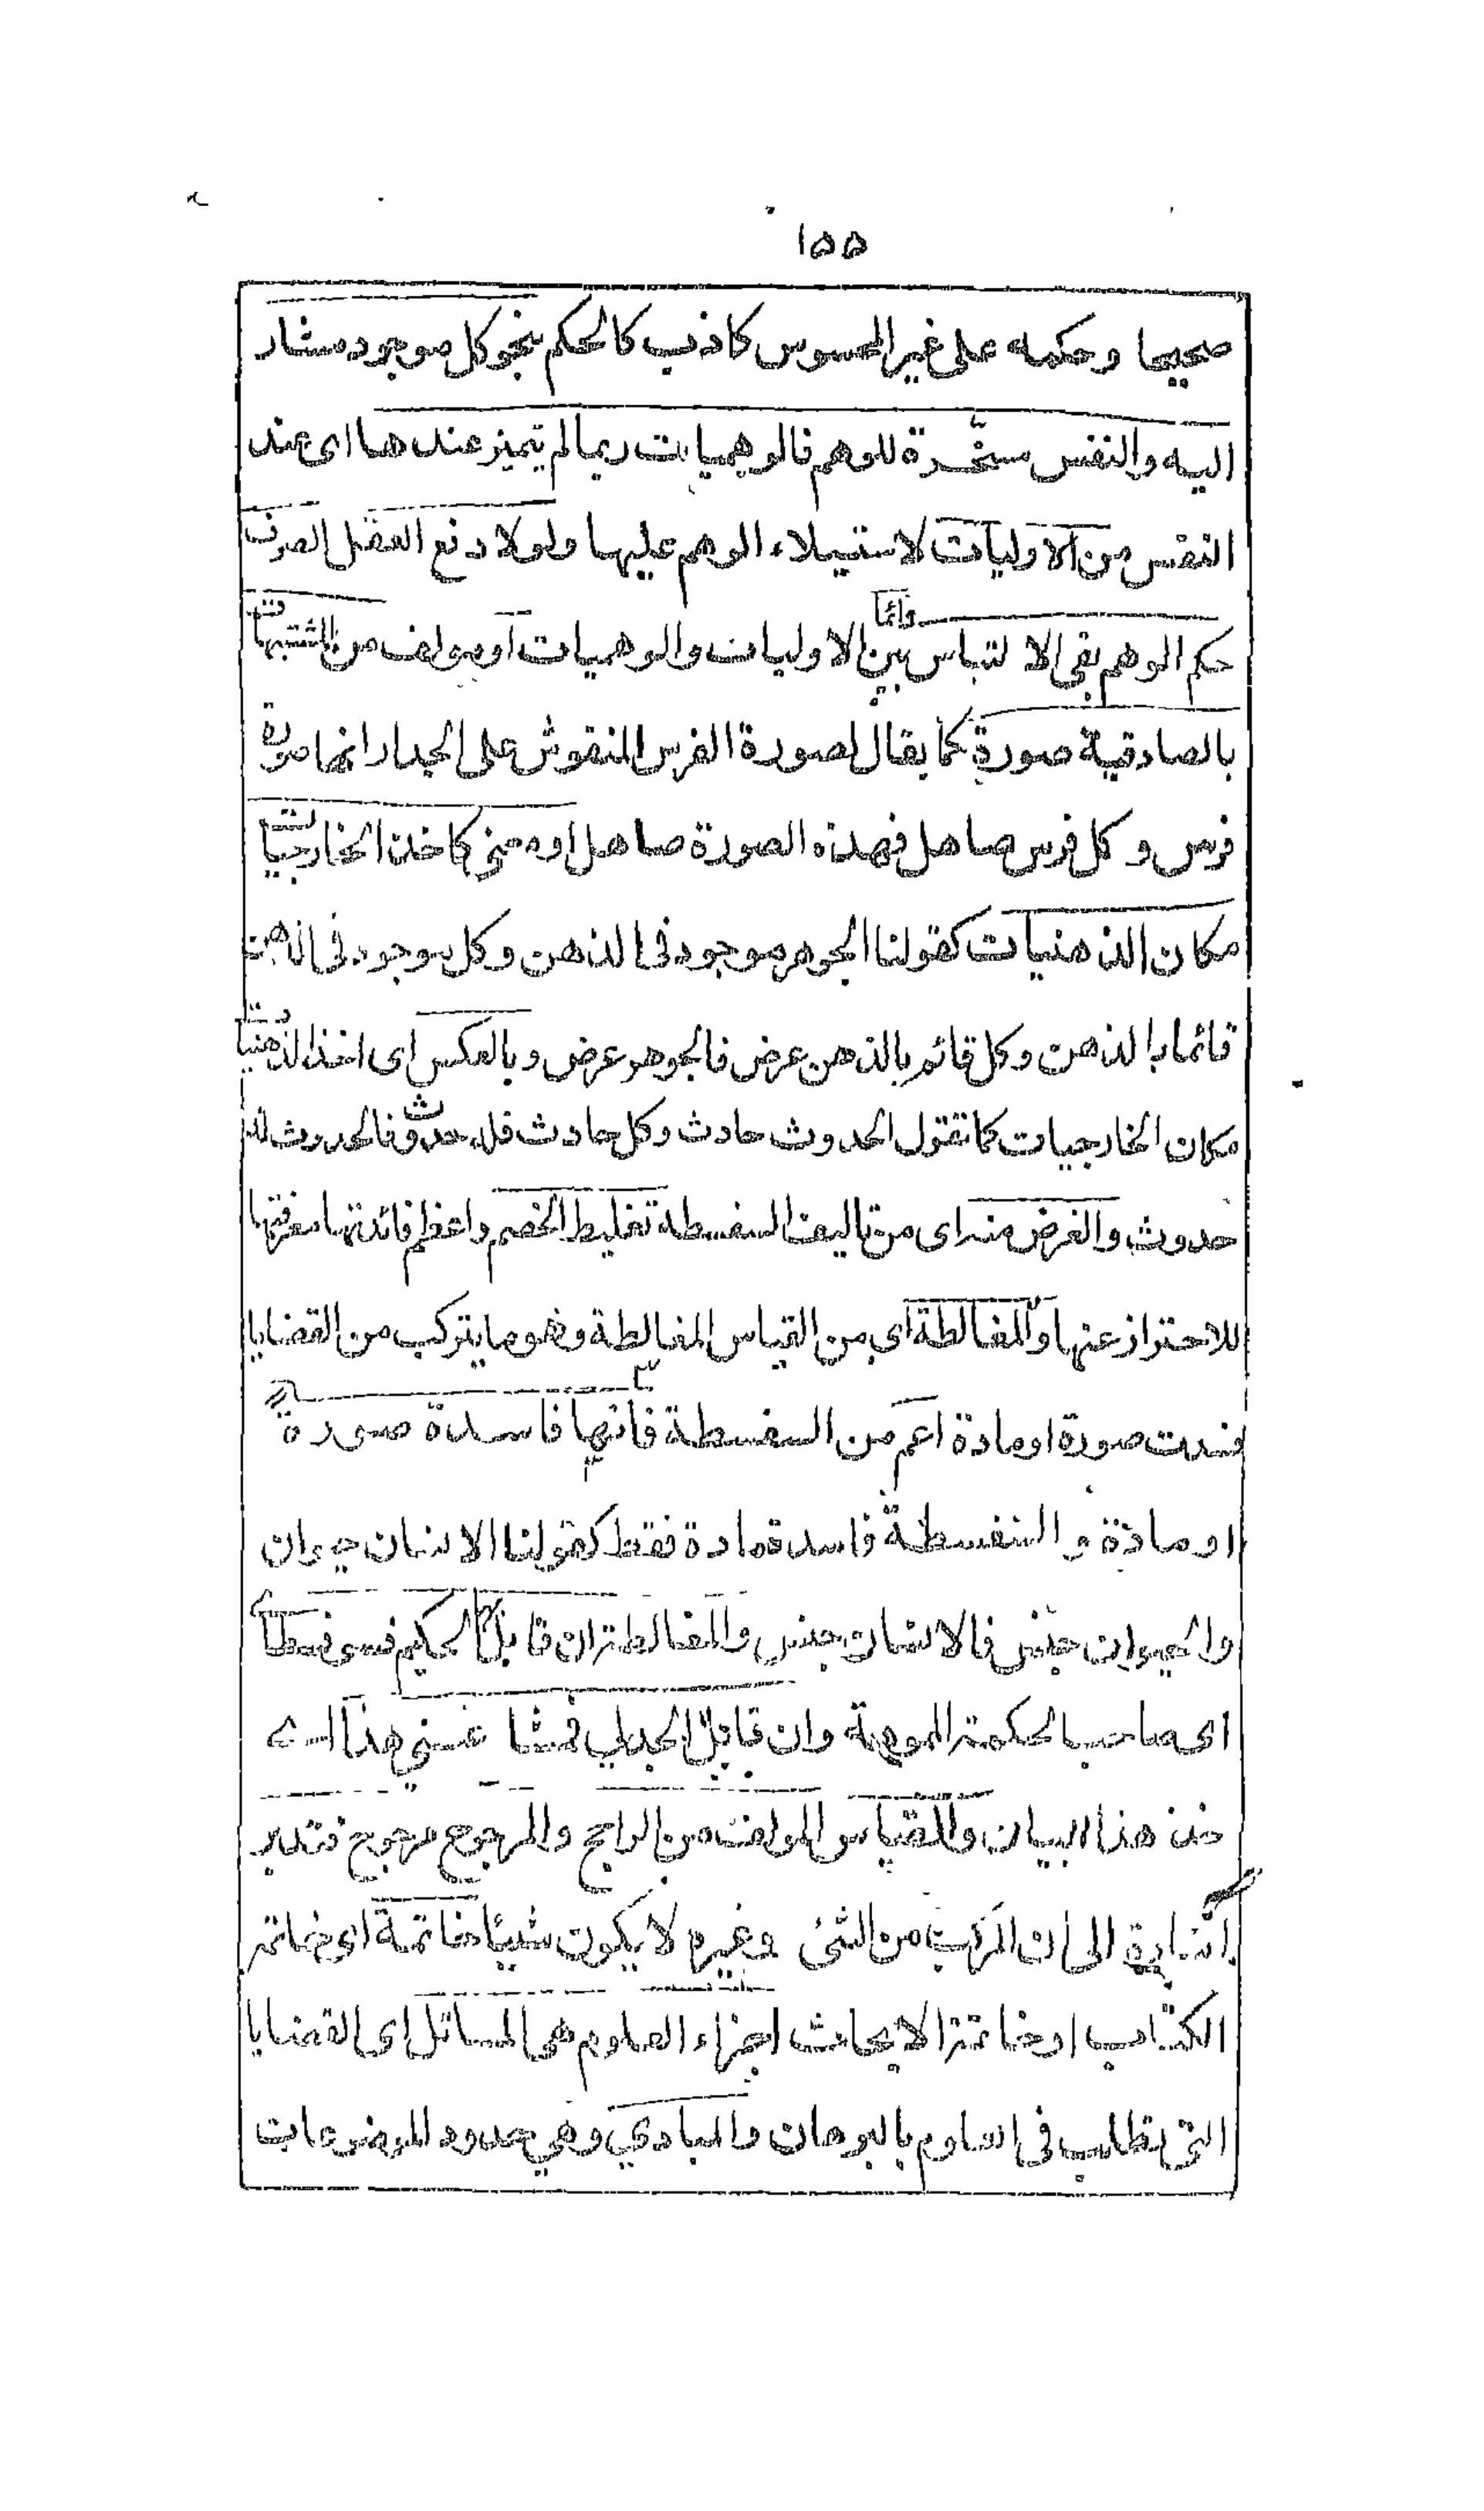 ١٥٥
صحيحا وحكمه على غير المحسوس كاذب كالحكم بنحو كل موجود مشار
اليه والنفس مسخّرة للوهم فالوهميات ربما لم يتميز عندها اى عند
النفس من الاوليات لاستيلاء الوهم عليها ولولا دفع العقل الصرف
حكم الوهم بقى الالتباس بين الاوليات والوهميات دائما او مولف من المشتبهات
بالصادقية صورة كما يقال لصورة الفرس المنقوش على الجدار انها صورة
فرس وكل فرس صاهل فهذه الصورة صاهل او معنى كاخذ الخارجيات
مكان الذهنيات كقولنا الجوهر موجود فى الذهن وكل موجود فى الذهن
قائما بالذهن وكل قائم بالذهن عرض فالجوهر عرض وبالعكس اى اخذ الذهنيات
مكان الخارجيات كما تقول الحدوث حادث وكل حادث فله حدوث فالحدوث له
حدوث والغرض منه اى من تاليف السفسطه تغليط الخصم واعظم فائدتها معرفتها
للاحتراز عنها والمغالطة اى من القياس المغالطة وهو ما يتركب من القضايا
فسدت صورة او مادة اعم من السفسطة فانها فاسدة صورة
او مادة و السفسطة فاسدة مادة فقط كقولنا الانسان حيوان
والحيوان جنس فالانسان جنس والمغالط ان قابل الحكيم فسوفسطائى
اى صاحب الحكمة المموهة وان قابل الجدلي فمشاغبي هذا اى
خذ هذا البيان والقياس المولف من الراجح والمرجوح مرجوح فتدبر
اشارة الى ان المركب من الشئ وغيره لا يكون شيئا خاتمة اى خاتمة
الكتاب او خاتمة الابحاث اجزاء العلوم هى المسائل اى القضايا
التى تطلب فى العلوم بالبرهان والمبادي وهي حدود الموضوعات